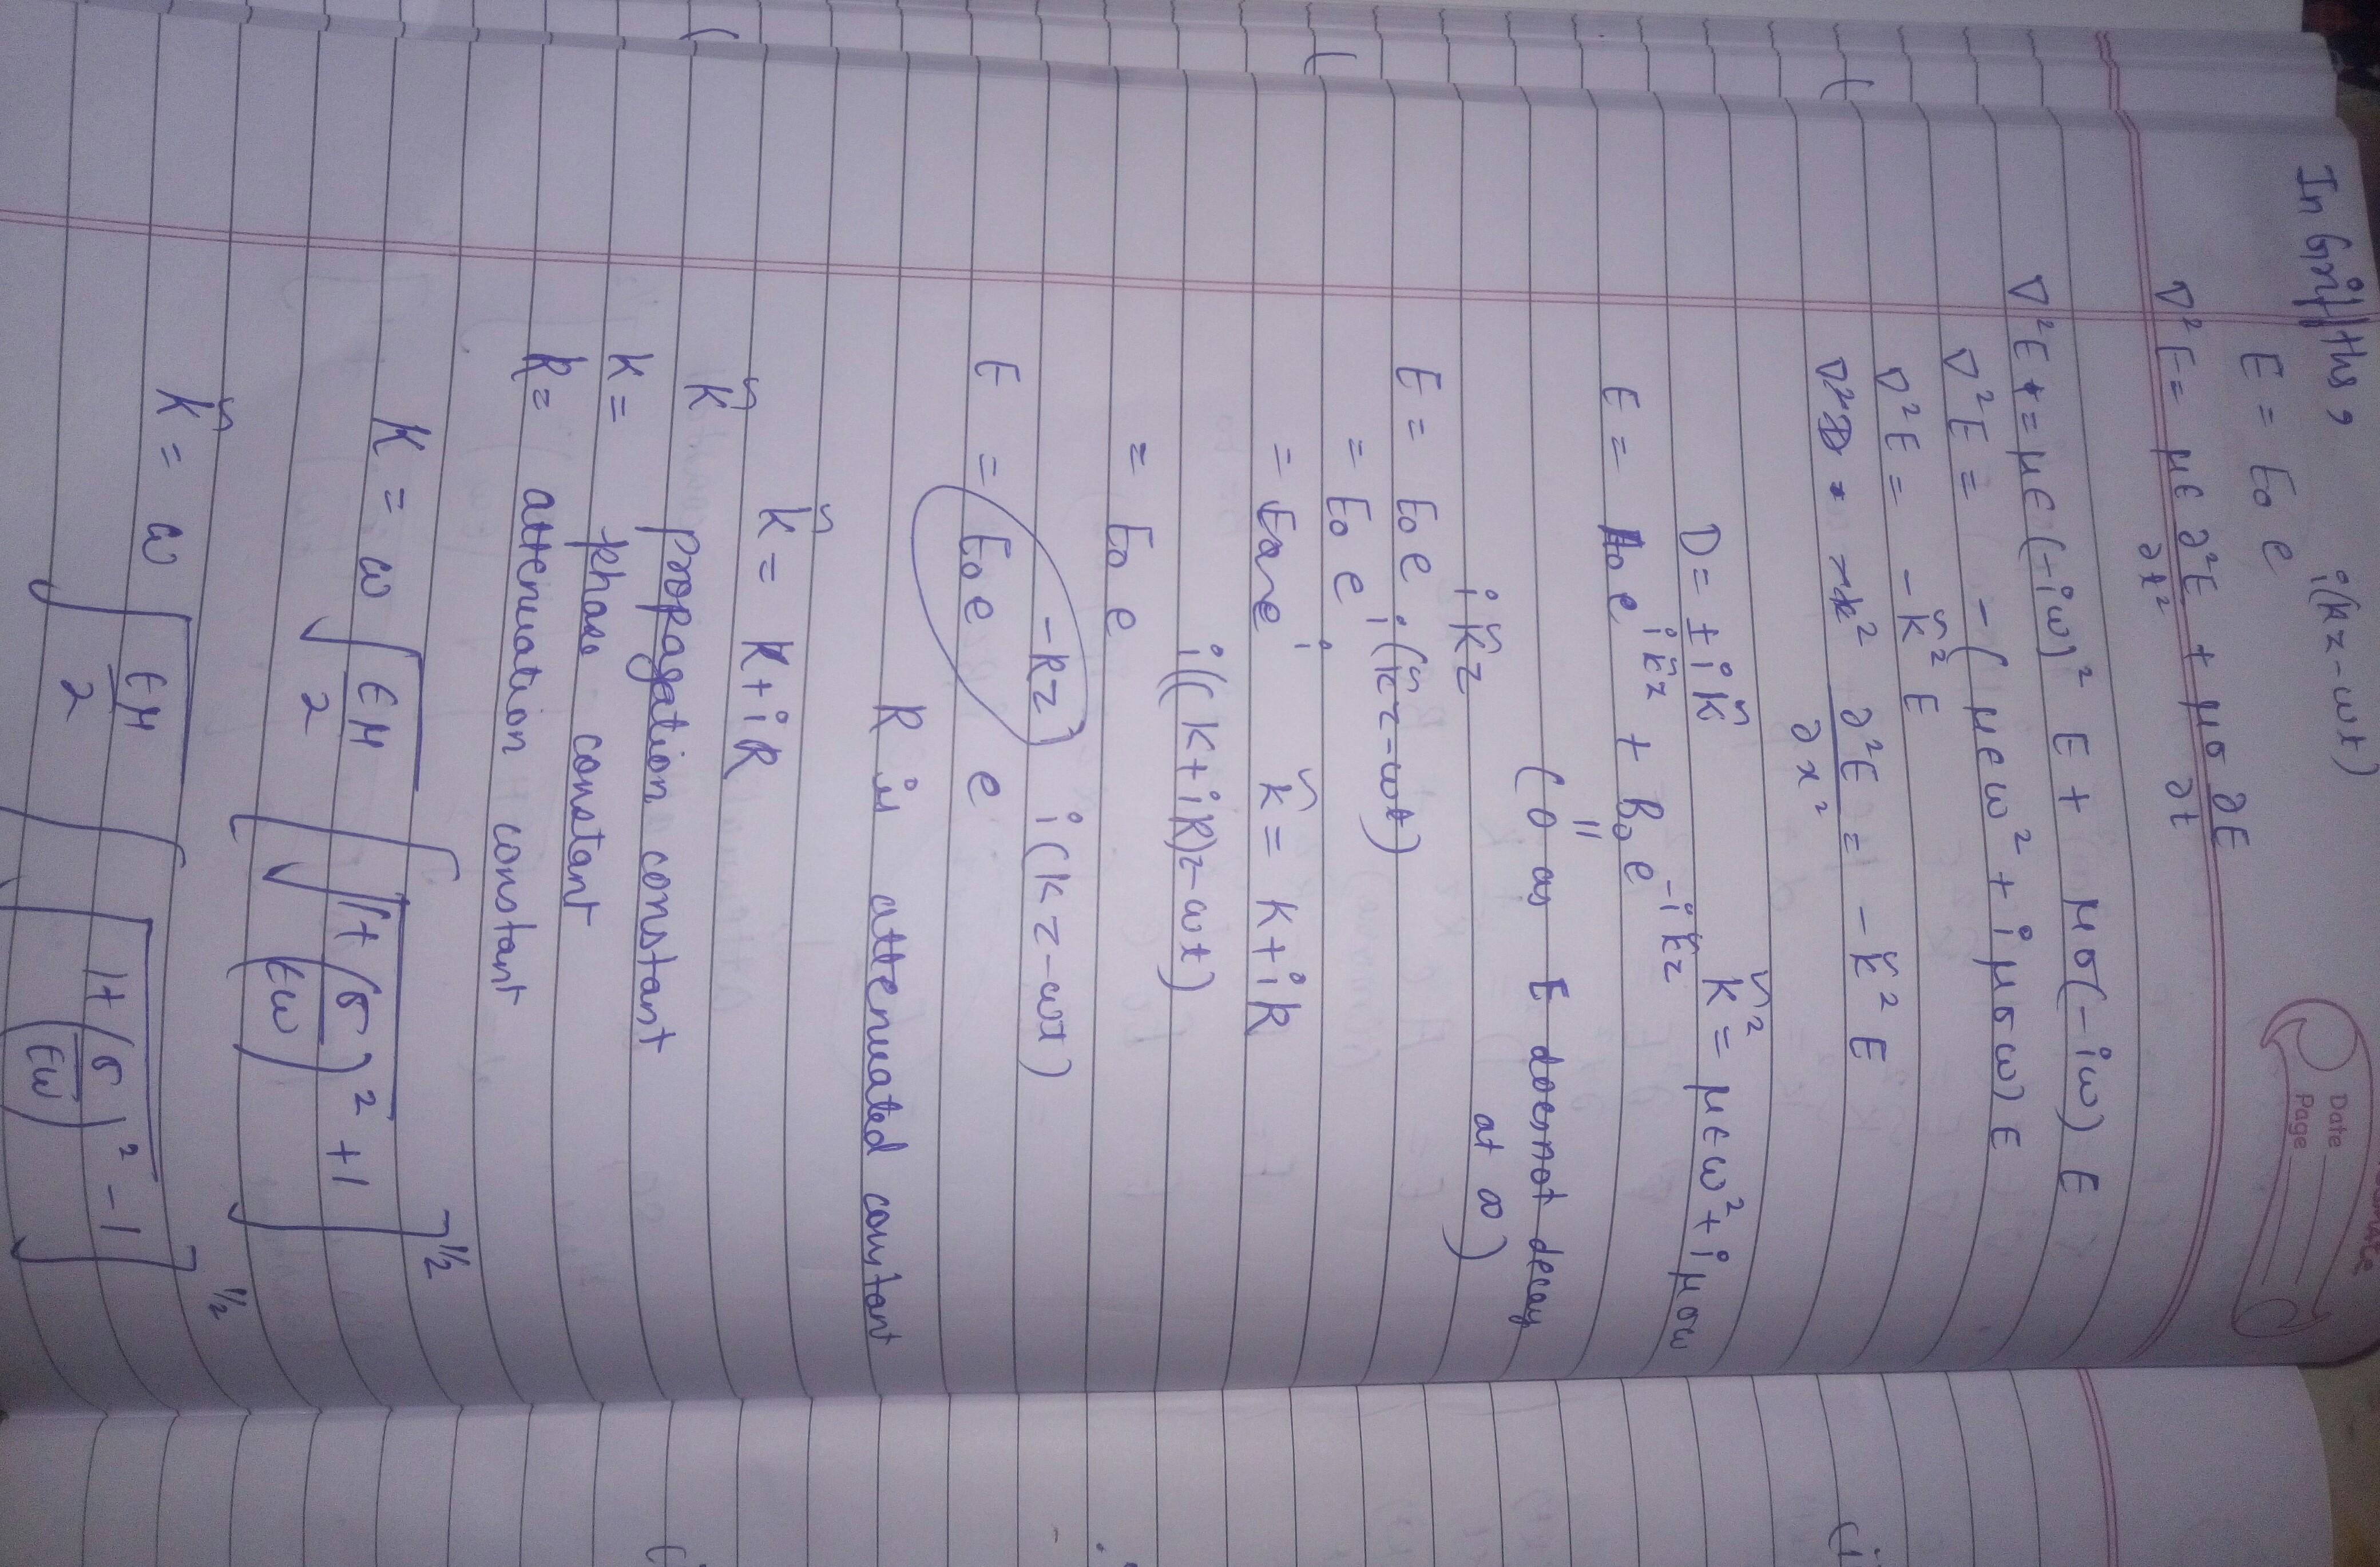 Date
Page
In Griffiths,
E = E₀ e^{i(kz-ωt)}
∇²E = με ∂²E/∂t² + μσ ∂E/∂t
∇²E = με(-iω)² E + μσ(-iω) E
∇²E = -(μεω² + iμσω) E
∇²E = -k̃² E
∂²E/∂x² = -k̃² E
D = ± i k̃    k̃² = μεω² + iμσω
E = A₀ e^{i k̃ z} + B₀ e^{-i k̃ z}
(0 as E doesnot decay
at ∞)
e^{i k̃ z}
E = E₀ e^{i(k̃z-ωt)}
= E₀ e^{i
= E₀ e^{i    k̃ = k+ik
= E₀ e^{i((k+ik)z-ωt)}
E = E₀ e^{-kz} e^{i(kz-ωt)}
k is attenuated constant
k̃ = k+ik
k̃ propagation constant
k = phase constant
k = attenuation constant
k = ω √(εμ/2) [√(1+(σ/εω)²) +1]^{1/2}
k̃ = ω √(εμ/2) [√(1+(σ/εω)²) -1]^{1/2}